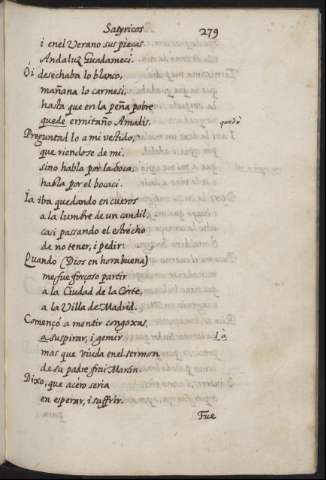 Satyricos 279
i en el Verano sus pieças
Andaluz Guadameci.
Oi desechaba lo blanco,
mañana lo carmesi,
hasta que en la peña pobre
quede ermitaño Amadis. quedò
Preguntadlo a mi vestido,
que riendose de mi,
sino habla por la boca,
habla por el bocaci.
Ia iba quedando en cueros
a la lumbre de un candil,
casi passando el estrecho
de no tener, i pedir.
Quando (Dios en hora buena)
me fue forçoso partir
a la Ciudad de la Corte,
a la Villa de Madrid.
Començò a mentir congoxas,
a suspirar, i gemir
mas que viuda en el sermon
de su padre frai Martin.
Dixo, que acero seria
en esperar, i suffrir.
Fue